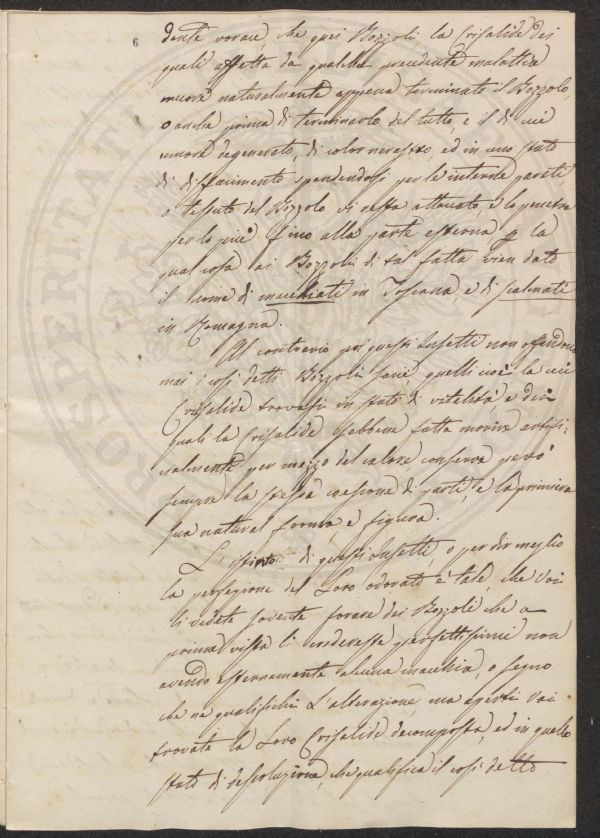 6
dente vorace, che quei Bozzoli la Crisalide dei
quali affetta da qualche precedente malattia
muore naturalmente appena terminato il Bozzolo,
o anche prima di terminarlo del tutto, e il di cui
umore degenerato, di color nerastro ed in uno stato
di disfacimento spandendosi per le interne pareti,
o tessuto del Bozzolo vi resta attaccato, e lo penetra
per lo più fino alla parte esterna la
qual cosa ai Bozzoli di tal fatta vien dato
il nome di macchiati in Toscana, e di
in Romagna.
Al contrario poi questi Insetti non offendono
mai i così detti Bozzoli sani, quelli cioè la cui
Crisalide trovasi in stato di vitalità, e dei
quali la Crisalide sebbene fatta morire artifi:
cialmente per mezzo del calore conserva però
sempre la stessa coesione di parti, e la primiera
sua natural forma, e figura.
L'istinto di questi Insetti, o per dir meglio
la perfezione del Loro odorato è tale, che Voi
li vedete sovente forare dei Bozzoli che a
prima vista li credereste perfettissimi non
avendo esternamente alcuna macchia, o segno
che ne qualifichi L'alterazione, ma aperti Voi
trovate la Loro Crisalide decomposta, ed in quello
stato di dissoluzione, che qualifica il così detto
PROSPERITATI